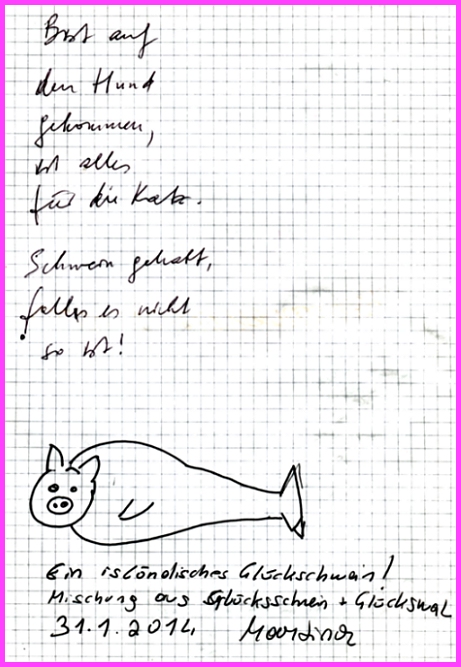 Bist auf
den Hund
gekommen,
ist alles
für die Katz.
Schwein gehabt,
falls es nicht
so ist!
Ein isländisches Glückschwein!
Mischung aus Glücksschwein + Glückswal
31.1.2014